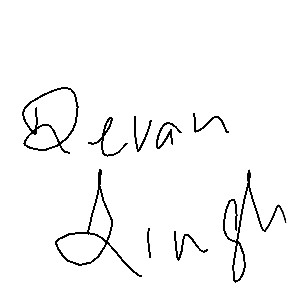 Devan
Singh